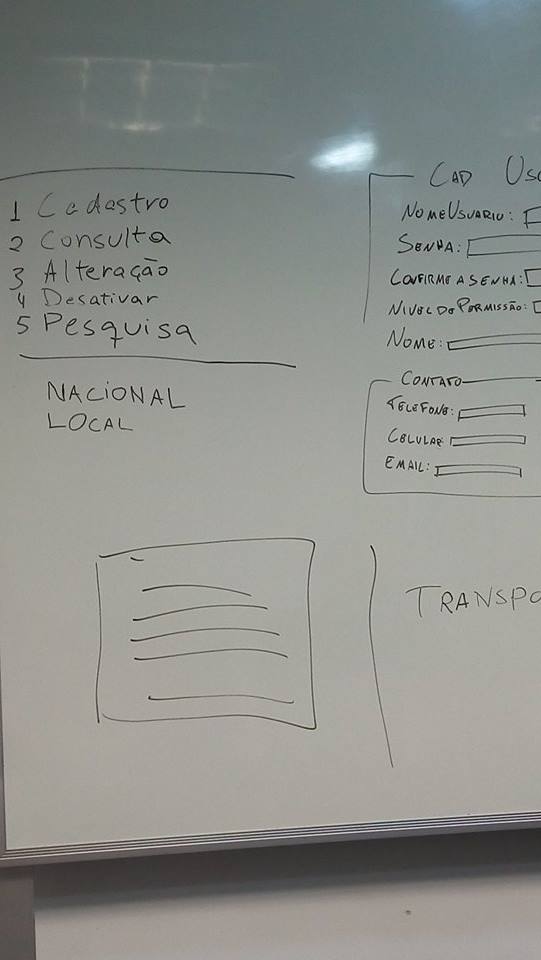 1 Cadastro
2 Consulta
3 Alteração
4 Desativar
5 Pesquisa
NACIONAL
LOCAL
CAD
NOMEUSUARIO:
SENHA:
CONFIRME A SENHA:
NIVEL DE PERMISSÃO:
NOME:
CONTATO
TELEFONE:
CELULAR:
EMAIL: